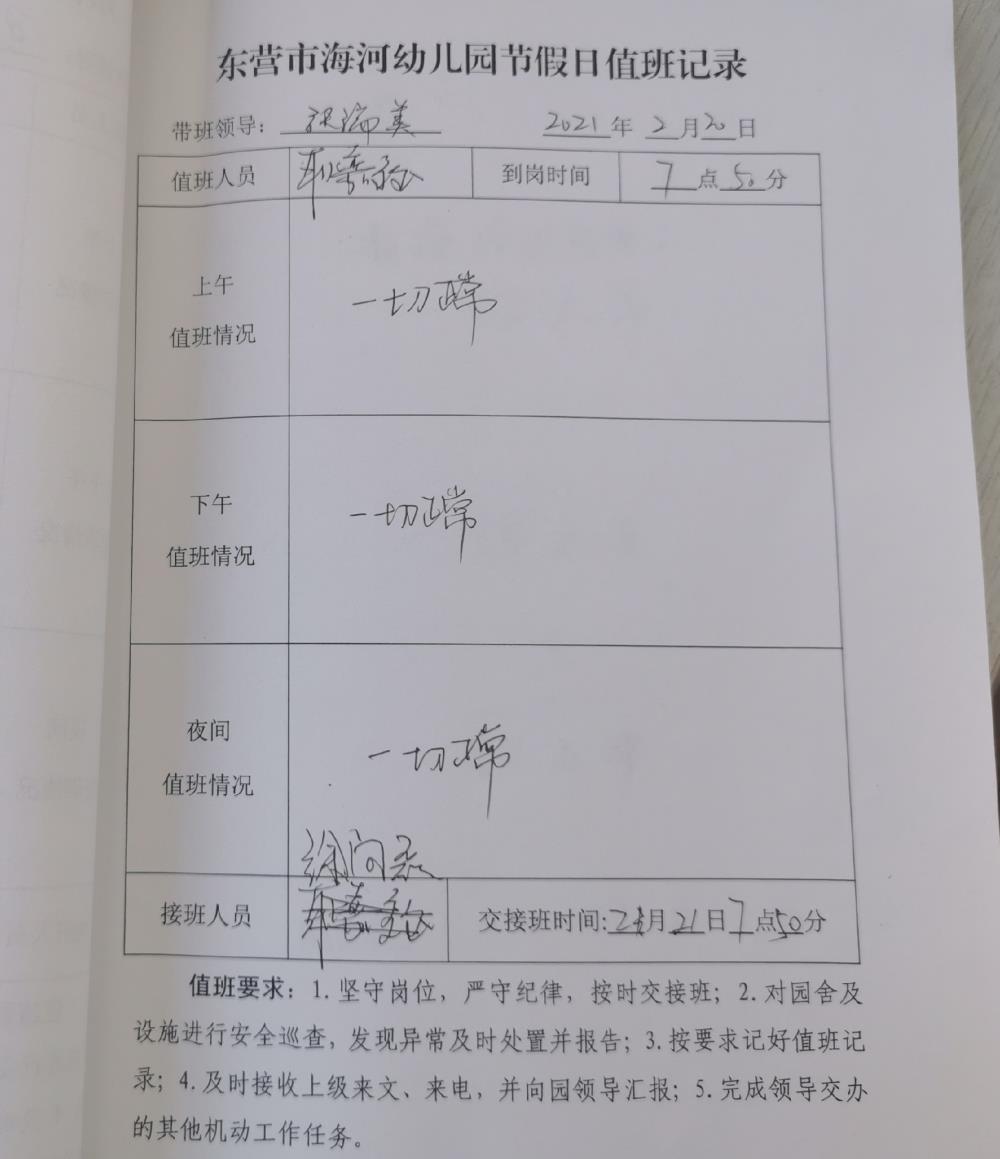 东营市海河幼儿园节假日值班记录
带班领导： 张瑞美 2021 年 2 月 20 日
值班人员 到岗时间 7 点 50 分
上午
值班情况
一切正常
下午
值班情况
一切正常
夜间
值班情况
一切正常
接班人员 交接班时间: 2 月 21 日 7 点 50 分
值班要求：1. 坚守岗位，严守纪律，按时交接班；2. 对园舍及
设施进行安全巡查，发现异常及时处置并报告；3. 按要求记好值班记
录；4. 及时接收上级来文、来电，并向园领导汇报；5. 完成领导交办
的其他机动工作任务。